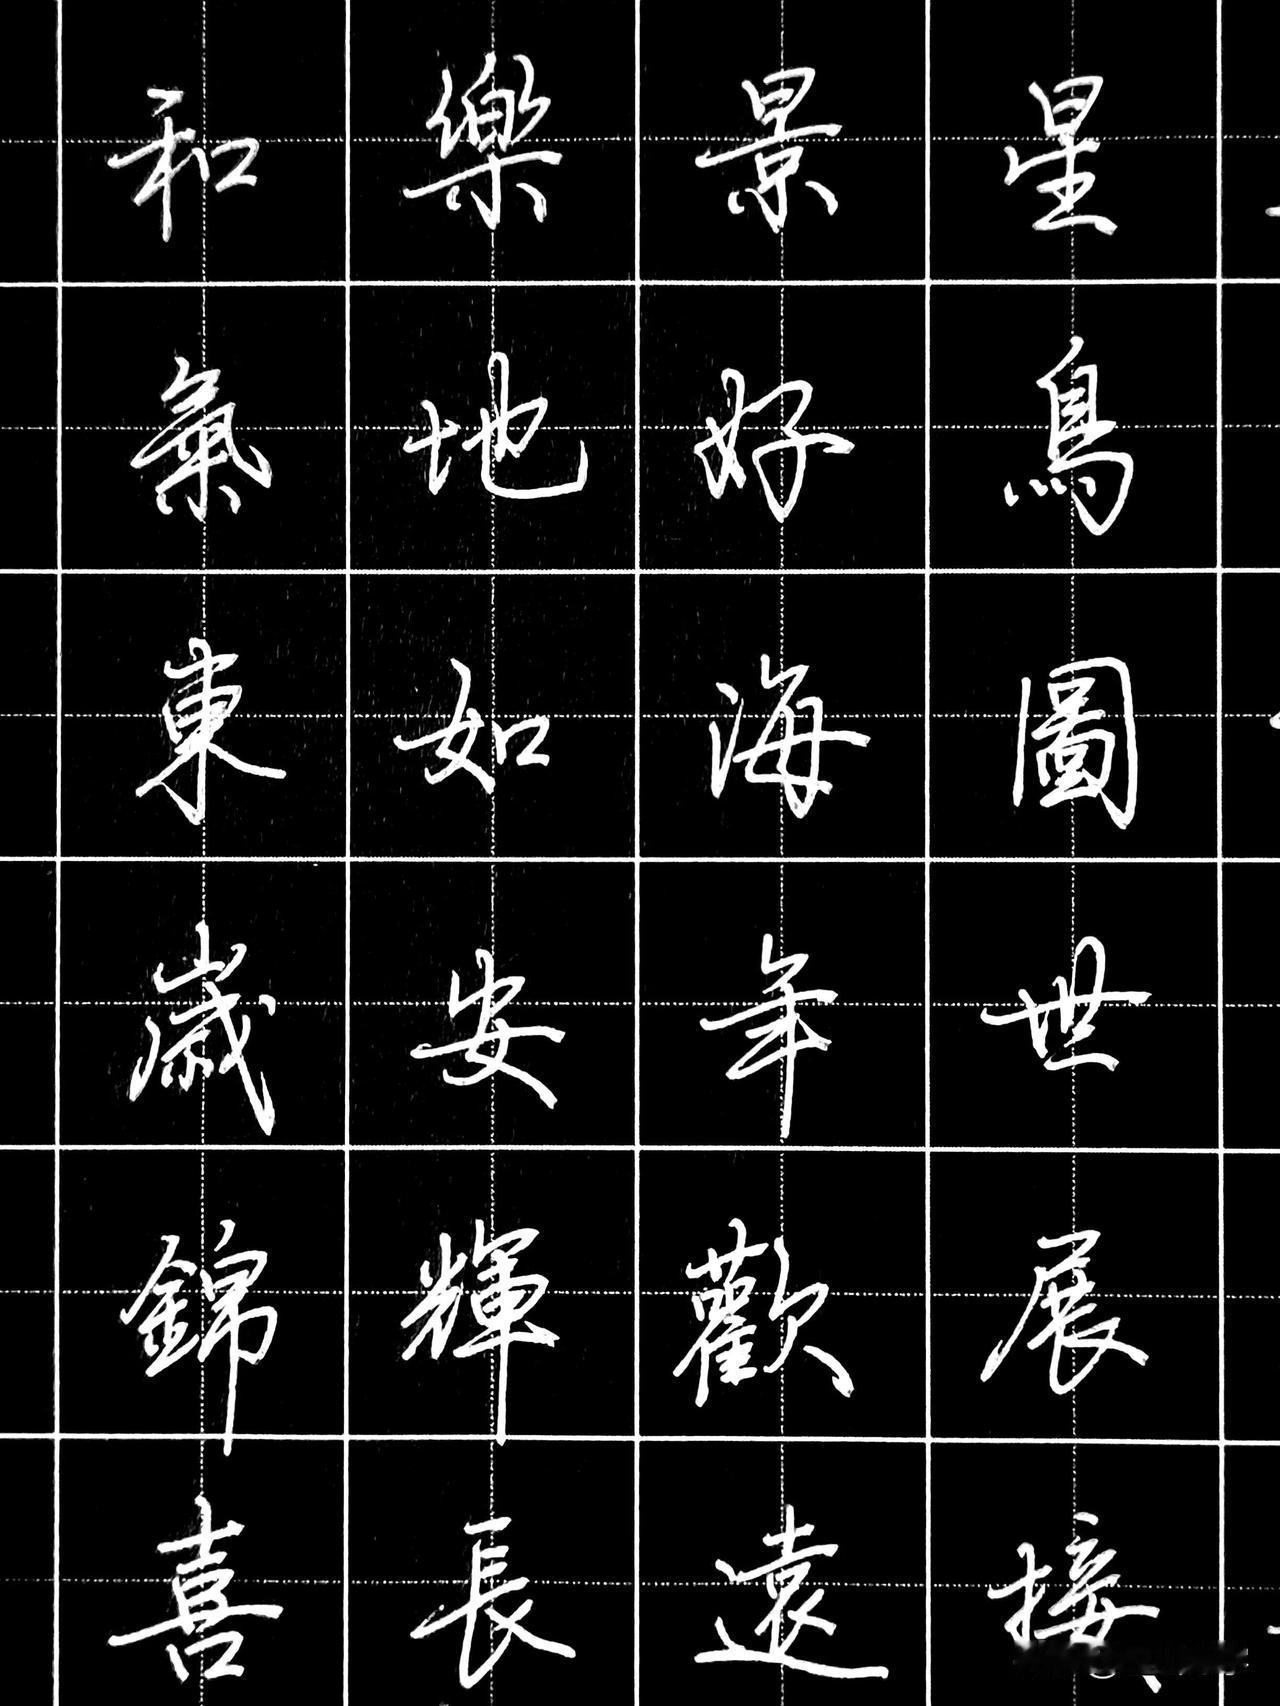 星鳥圖世展接
景好海年歡遠
樂地如安輝長
和氣東歲錦喜